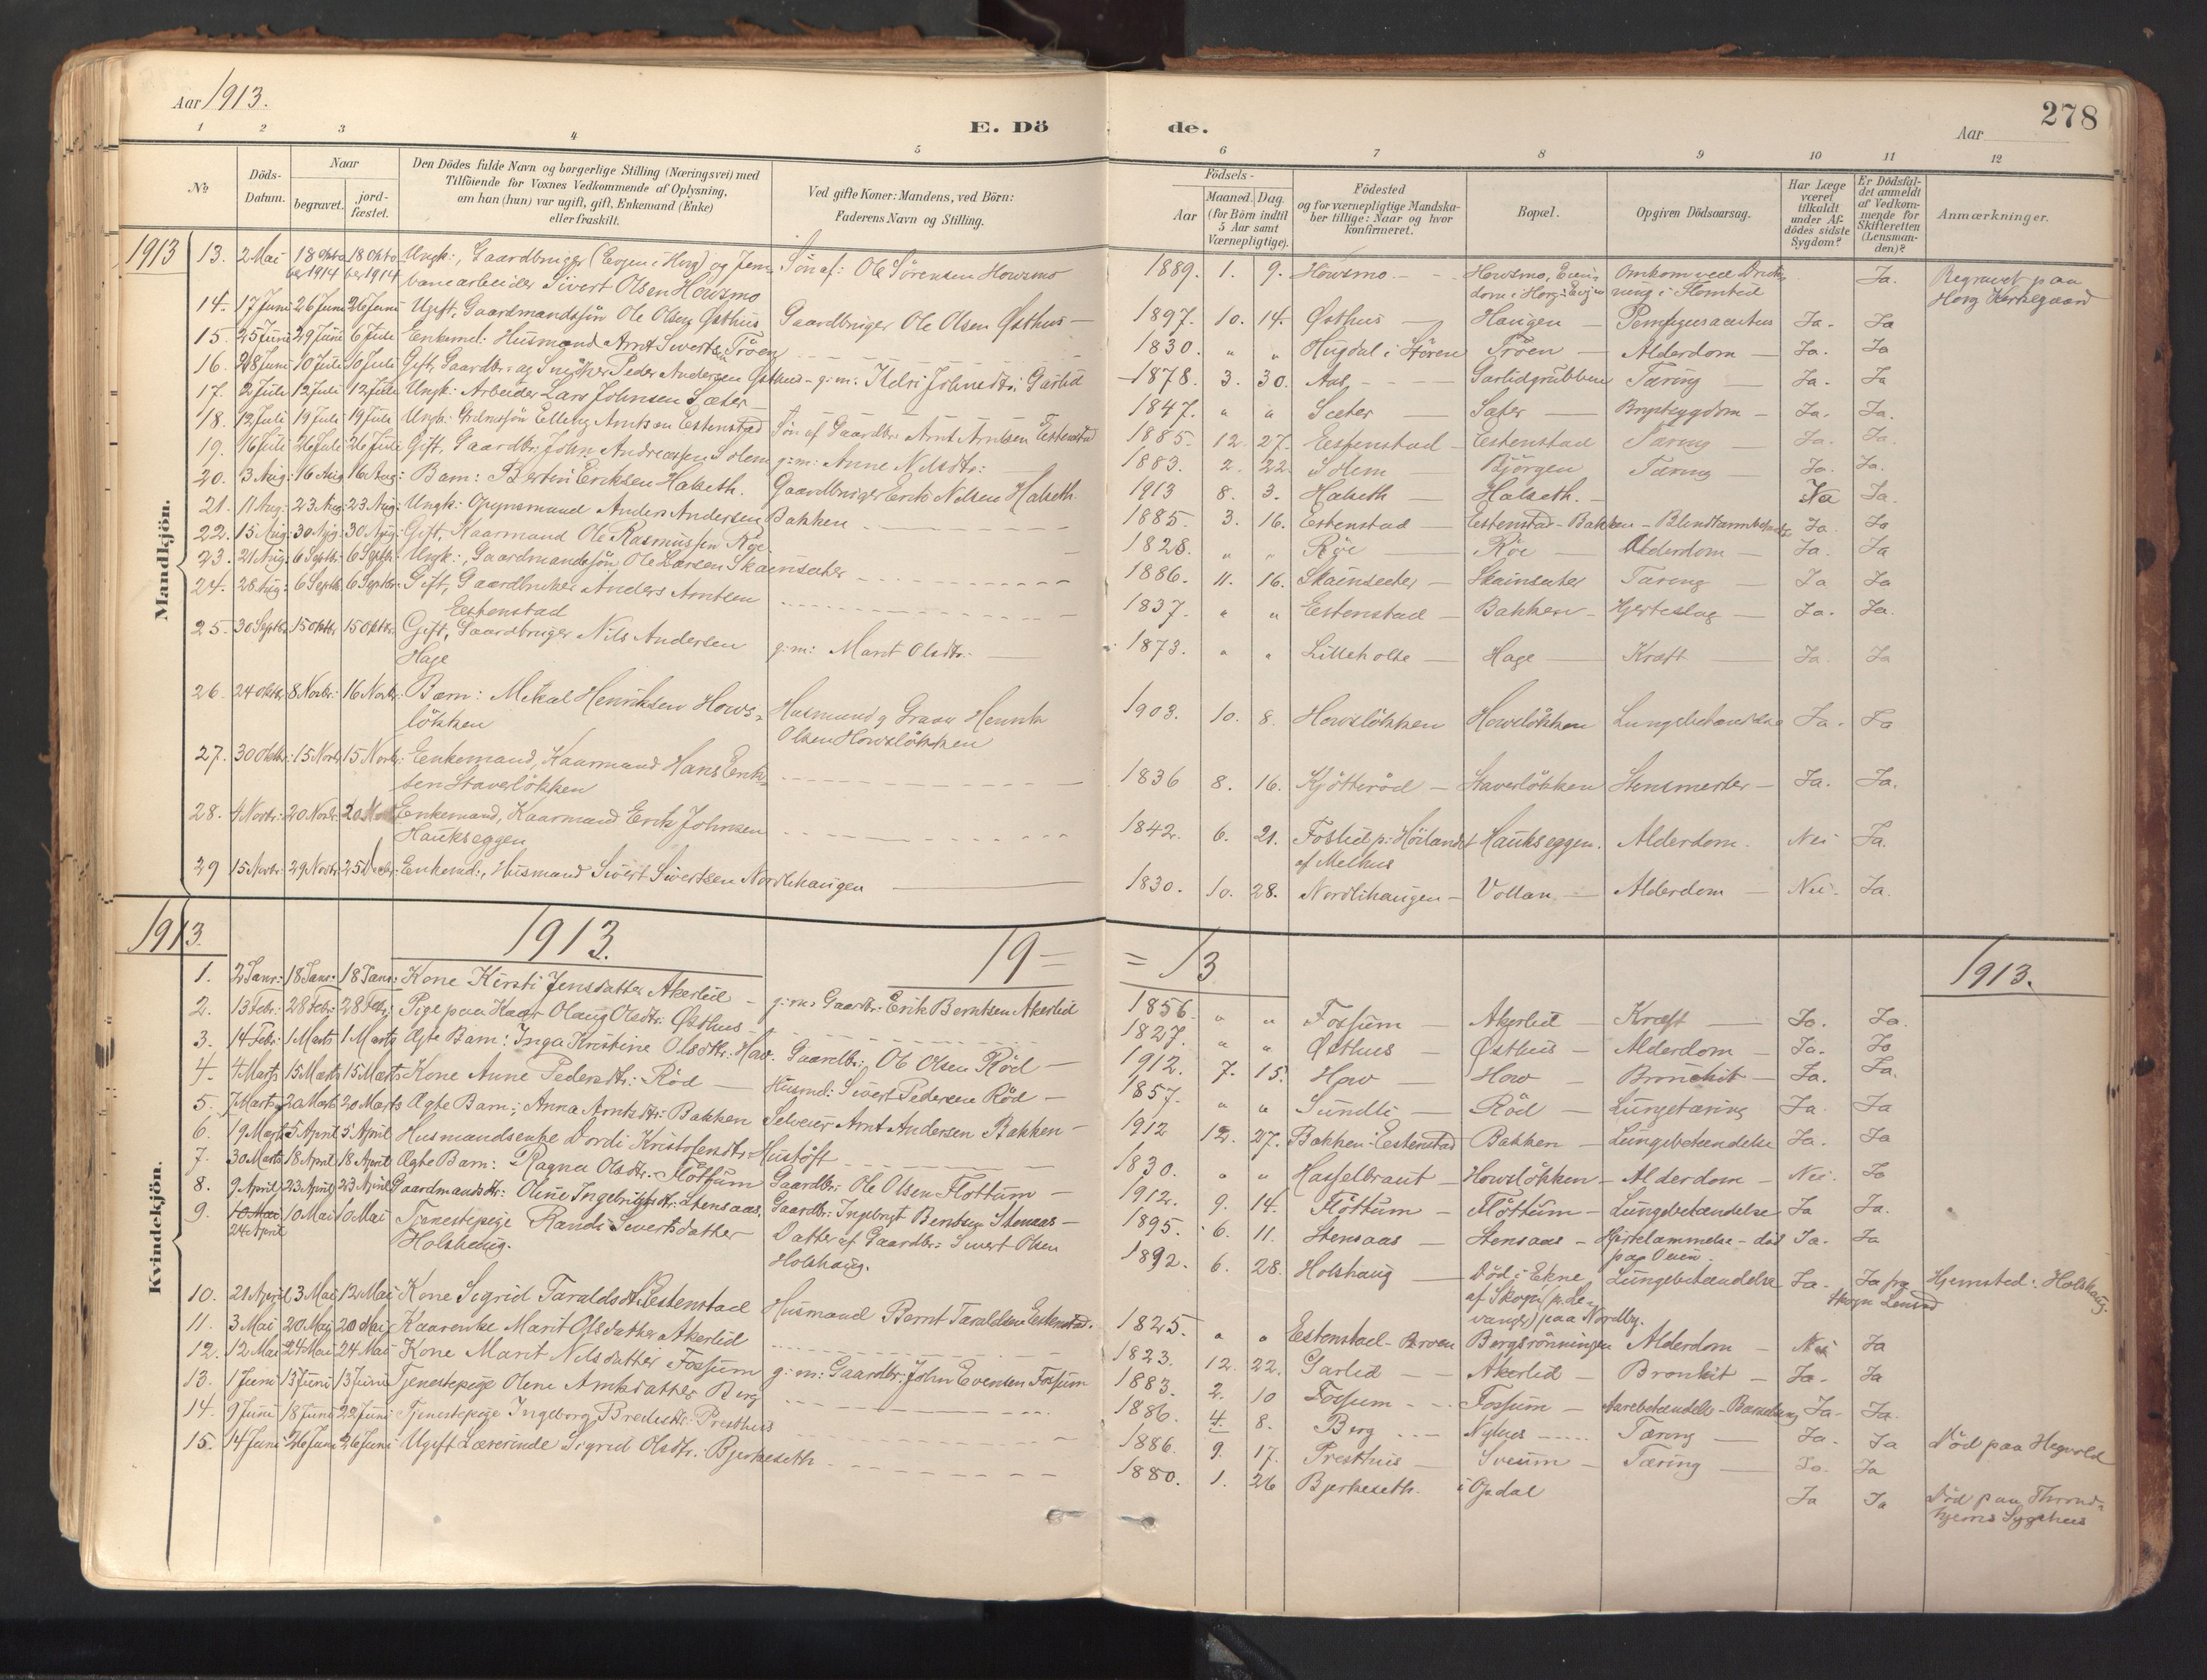 Aar 1913.
278
E. Dö de.
Aar
1 2 3 4 5 6 7 8 9 10 11 12
No
Döds-Datum.
Naar begravet. jord-fæstet.
Den Dödes fulde Navn og borgerlige Stilling (Næringsvei) med
Tilföiende for Voxnes Vedkommende af Oplysning,
om han (hun) var ugift, gift, Enkemand (Enke)
eller fraskilt.
Ved gifte Koner: Mandens, ved Börn:
Faderens Navn og Stilling.
Födsels-
Aar Maaned. Dag.
(for Börn indtil
5 Aar samt
Værnepligtige).
Födested
og for værnepligtige Mandska-
ber tillige: Naar og hvor
konfirmeret.
Bopæl.
Opgiven Dödsaarsag.
Har Læge
været
tilkaldt
under Af-
dödes sidste
Sygdom?
Er Dödsfal-
det anmeldt
af Vedkom-
mende for
Skifteretten
(Lensman-
den)?
Anmærkninger.
Mandkjön.
1913 13. 2 Mai 18 Okto ber 1914 18 Okto ber 1914 Ungk:, Gaardbruger (Evjen i Horg) og Jern= banearbeider Sivert Olsen Howsmo Søn af: Ole Sørensen Howsmo 1889. 1. 9. Howsmo Howsmo, Eien= dom i Horg: Evjen Omkom ved i Flomtid Ja. Begravet paa Horg Kirkegaard
14. 17 Juni 26 Juni 26 Juni Ugift, Gaardmandssøn Ole Olsen Østhus Gaardbruger Ole Olsen Østhus 1897. 10. 14. Østhus Haugen Pemfigus acutus Ja. Ja
15. 25 Juni 29 Juni 6 Juli Enkemd: Husmand Arnt Sivertsen Trøen 1830. " " Hugdal i Støren Trøen Alderdom Ja. Ja
16. 28 Juni 10 Juli 10 Juli Gift, Gaardbr: og Snedker Peder Andersen Østhus g: m: Ildri Johnsdtr: Garlid 1878. 3. 30. Aas Garlidgrubben Tæring Ja. Ja
17. 2 Juli 12 Juli 12 Juli Ungk: Arbeider Lars Johnsen Sæter 1847. " " Sæter Sæter Brystsygdom Ja. Ja.
18. 12 Juli 19 Juli 19 Juli Ungk: Grdmsøn Elling Arntsen Estenstad Søn af Gaardbr: Arnt Arntsen Estenstad 1885. 12. 27. Estenstad Estenstad Tæring Ja. Ja.
19. 16 Juli 26 Juli 26 Juli Gift, Gaardbr: John Andreassen Solem g: m: Anne Nilsdtr: 1883. 2. 22 Solem Bjørgen Tæring Ja. Ja.
20. 3 Aug: 16 Aug 16 Aug: Barn: Bertin Eriksen Halseth. Gaardbruger Erik Nilsen Halseth. 1913 8. 3. Halseth Halseth. Ja Ja.
21. 11 Aug: 23 Aug: 23 Aug: Ungk: Opsynsmand Anders Andersen Bakken 1885. 3. 16. Estenstad Estenstad-Bakken Ja. Ja
22. 15 Aug: 30 Aug: 30 Aug: Gift, Kaarmand Ole Rasmussen Røe 1828. " " Røe Røe Alderdom Ja. Ja
23. 21 Aug: 6 Septbr: 6 Septbr: Ungk:, Gaardmandssøn Ole Larsen Skainsæter 1886. 11. 16. Skainsæter Skainsæter Tæring Ja Ja
24. 28 Aug: 6 Septbr: 6 Septbr: Gift, Gaardbruker Anders Arntsen Estenstad 1837. " " Estenstad Bakken Hjerteslag Ja. Ja.
25. 30 Septbr 15 Oktbr 15 Oktbr: Gift, Gaardbruger Nils Andersen Hage g: m: Marit Olsdtr. 1873. " " Lilleholte Hage Kræft Ja. Ja
26. 24 Oktbr 8 Novbr: 16 Novbr: Barn: Mikal Henriksen Hows= løkken Husmand g Graver Henrik Olsen Howsløkken 1903. 10. 8. Howsløkken Howsløkken Lungebetændelse Ja. Ja
27. 30 Oktbr: 15 Novbr 15 Novbr: Enkemand, Kaarmand Hans Erik= sen Staverløkken 1836 8. 16. Kjøtterød Staverløkken Stensmerter Ja. Ja.
28. 4 Novbr: 20 Novbr. 20 Enkemand, Kaarmand Erik Johnsen Haukseggen 1842. 6. 21. Foslid p: Høilandet af Melhus Haukseggen. Alderdom. Nei Ja.
29 15 Novbr: 29 Novbr 25 Decbr: Enkemd:, Husmand Sivert Sivertsen Nordlihaugen 1830. 10. 28. Nordlihaugen Vollan Alderdom Nei. Ja.
1913. 1913. 19= =13 1913.
Kvindekjön.
1. 2 Janr: 18 Janr: 18 Janr: Kone Kirsti Jensdatter Akerlid g: m: Gaardbr: Erik Berntsen Akerlid 1856. " " Fossum Akerlid Kræft Ja. Ja.
2. 13 Febr: 28 Febr: 28 Febr: Pige paa Kaar Olaug Olsdtr: Østhus 1827. " " Østhus Østhus Alderdom Ja. Ja
3. 14 Febr: 1 Marts 1 Marts Ægte Barn: Inga Kristine Olsdtr: How. Gaardbr: Ole Olsen Rød 1912. 7. 15. How How Bronchit Ja. Ja.
4. 4 Marts 15 Marts 15 Marts Kone Anne Pedersdtr: Rød Husmd: Sivert Pedersen Rød 1857. " " Sundli Rød Lungetæring Ja. Ja
5. 7 Marts 20 Marts 20 Marts Ægte Barn: Anna Arntsdtr: Bakken Selveier Arnt Andersen Bakken 1912 12. 27. Bakken: Estenstad Bakken Lungebetændelse Ja. Ja
6. 19 Marts 5 April 5 April Husmandsenke Dordi Kristofersdtr: Hustøft 1830. " " Hasselbraut Howsløkken Alderdom Nei. Ja
7. 30 Marts 18 April 18 April Ægte Barn: Ragna Olsdtr: Fløttum Gaardbr: Ole Olsen Fløttum 1912. 9. 14. Fløttum Fløttum Lungebetændelse Ja Ja.
8. 9 April 23 April 23 April Gaardmandsdtr: Oline Ingebrigtsdtr: Stensaas. Gaardbr: Ingebrigt Bentsen Stensaas 1895. 6. 11. Stensaas Stensaas Hjertelammelse - død paa Veien. Ja. Ja
9. 10 Mai 24 April 10 Mai 10 Mai Tjenestepige Randi Sivertsdatter Holshaug. Datter af Gaardbr: Sivert Olsen Holshaug. 1892. 6. 28. Holshaug Død i Ekne af Skogn (p. Le= vanger) paa Nordby. Lungebetændelse Ja. Ja fra Skogn Lensmd Hjemsted: Holshaug.
10. 21 April 3 Mai 12 Mai Kone Sigrid Taraldsdtr Estenstad Husmand Bernt Taraldsen Estenstad. 1825. " " Estenstad-Broen Bergsrønningen Alderdom Nei Ja
11. 3 Mai 20 Mai 20 Mai Kaarenke Marit Olsdatter Akerlid 1823. 12. 22. Garlid Akerlid Bronkit Ja. Ja
12. 12 Mai 24 Mai 24 Mai Kone Marit Nilsdatter Fossum g: m: Gaardbr: John Evensen Fossum 1883. 2. 10 Fossum Fossum Aarebetændelse - Barselseng Ja. Ja.
13. 1 Juni 13 Juni 13 Juni Tjenestepige Oline Arntsdatter Berg 1886. 4. 8. Berg Nyhus Tæring Ja. Ja Død paa Hegvold
14. 9 Juni 18 Juni 22 Juni Tjenestepige Ingeborg Bredesdtr: Presthus 1886. 9. 17. Presthus Sveum Tæring Ja. Ja
15. 14 Juni 26 Juni 26 Juni Ugift Lærerinde Sigrid Olsdtr: Bjerkeseth 1880. 1. 26 Bjerkeseth. i Opdal Ja Ja Død paa Thrond= hjems Sygehus